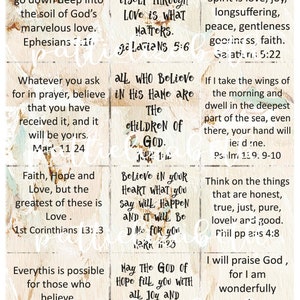 go down deep into
the soil of God's
marvelous love.
Ephesians 3:16
itself through
love is what
matters.
galatians 5:6
Spirit is love, joy,
longsuffering,
peace, gentleness
goodness, faith.
Galatians 5:22
Whatever you ask
for in prayer, believe
that you have
received it, and it
will be yours.
Mark 11 24
all who believe
in his name are
the
children of
God.
If I take the wings of
the morning and
dwell in the deepest
part of the sea, even
there, your hand will
me.
Psalm 139. 9-10
Faith, Hope and
Love, but the
greatest of these is
Love .
1st Corinthians 13:13
Believe in your
heart what you
say will happen
and it will be
for you.
Mark 11:23
Think on the things
that are honest,
true, just, pure,
lovely and good.
Philippians 4:8
Everythis is possible
for those who
believe.
May the God of
Hope fill you with
all joy and
I will praise God ,
for I am
wonderfully